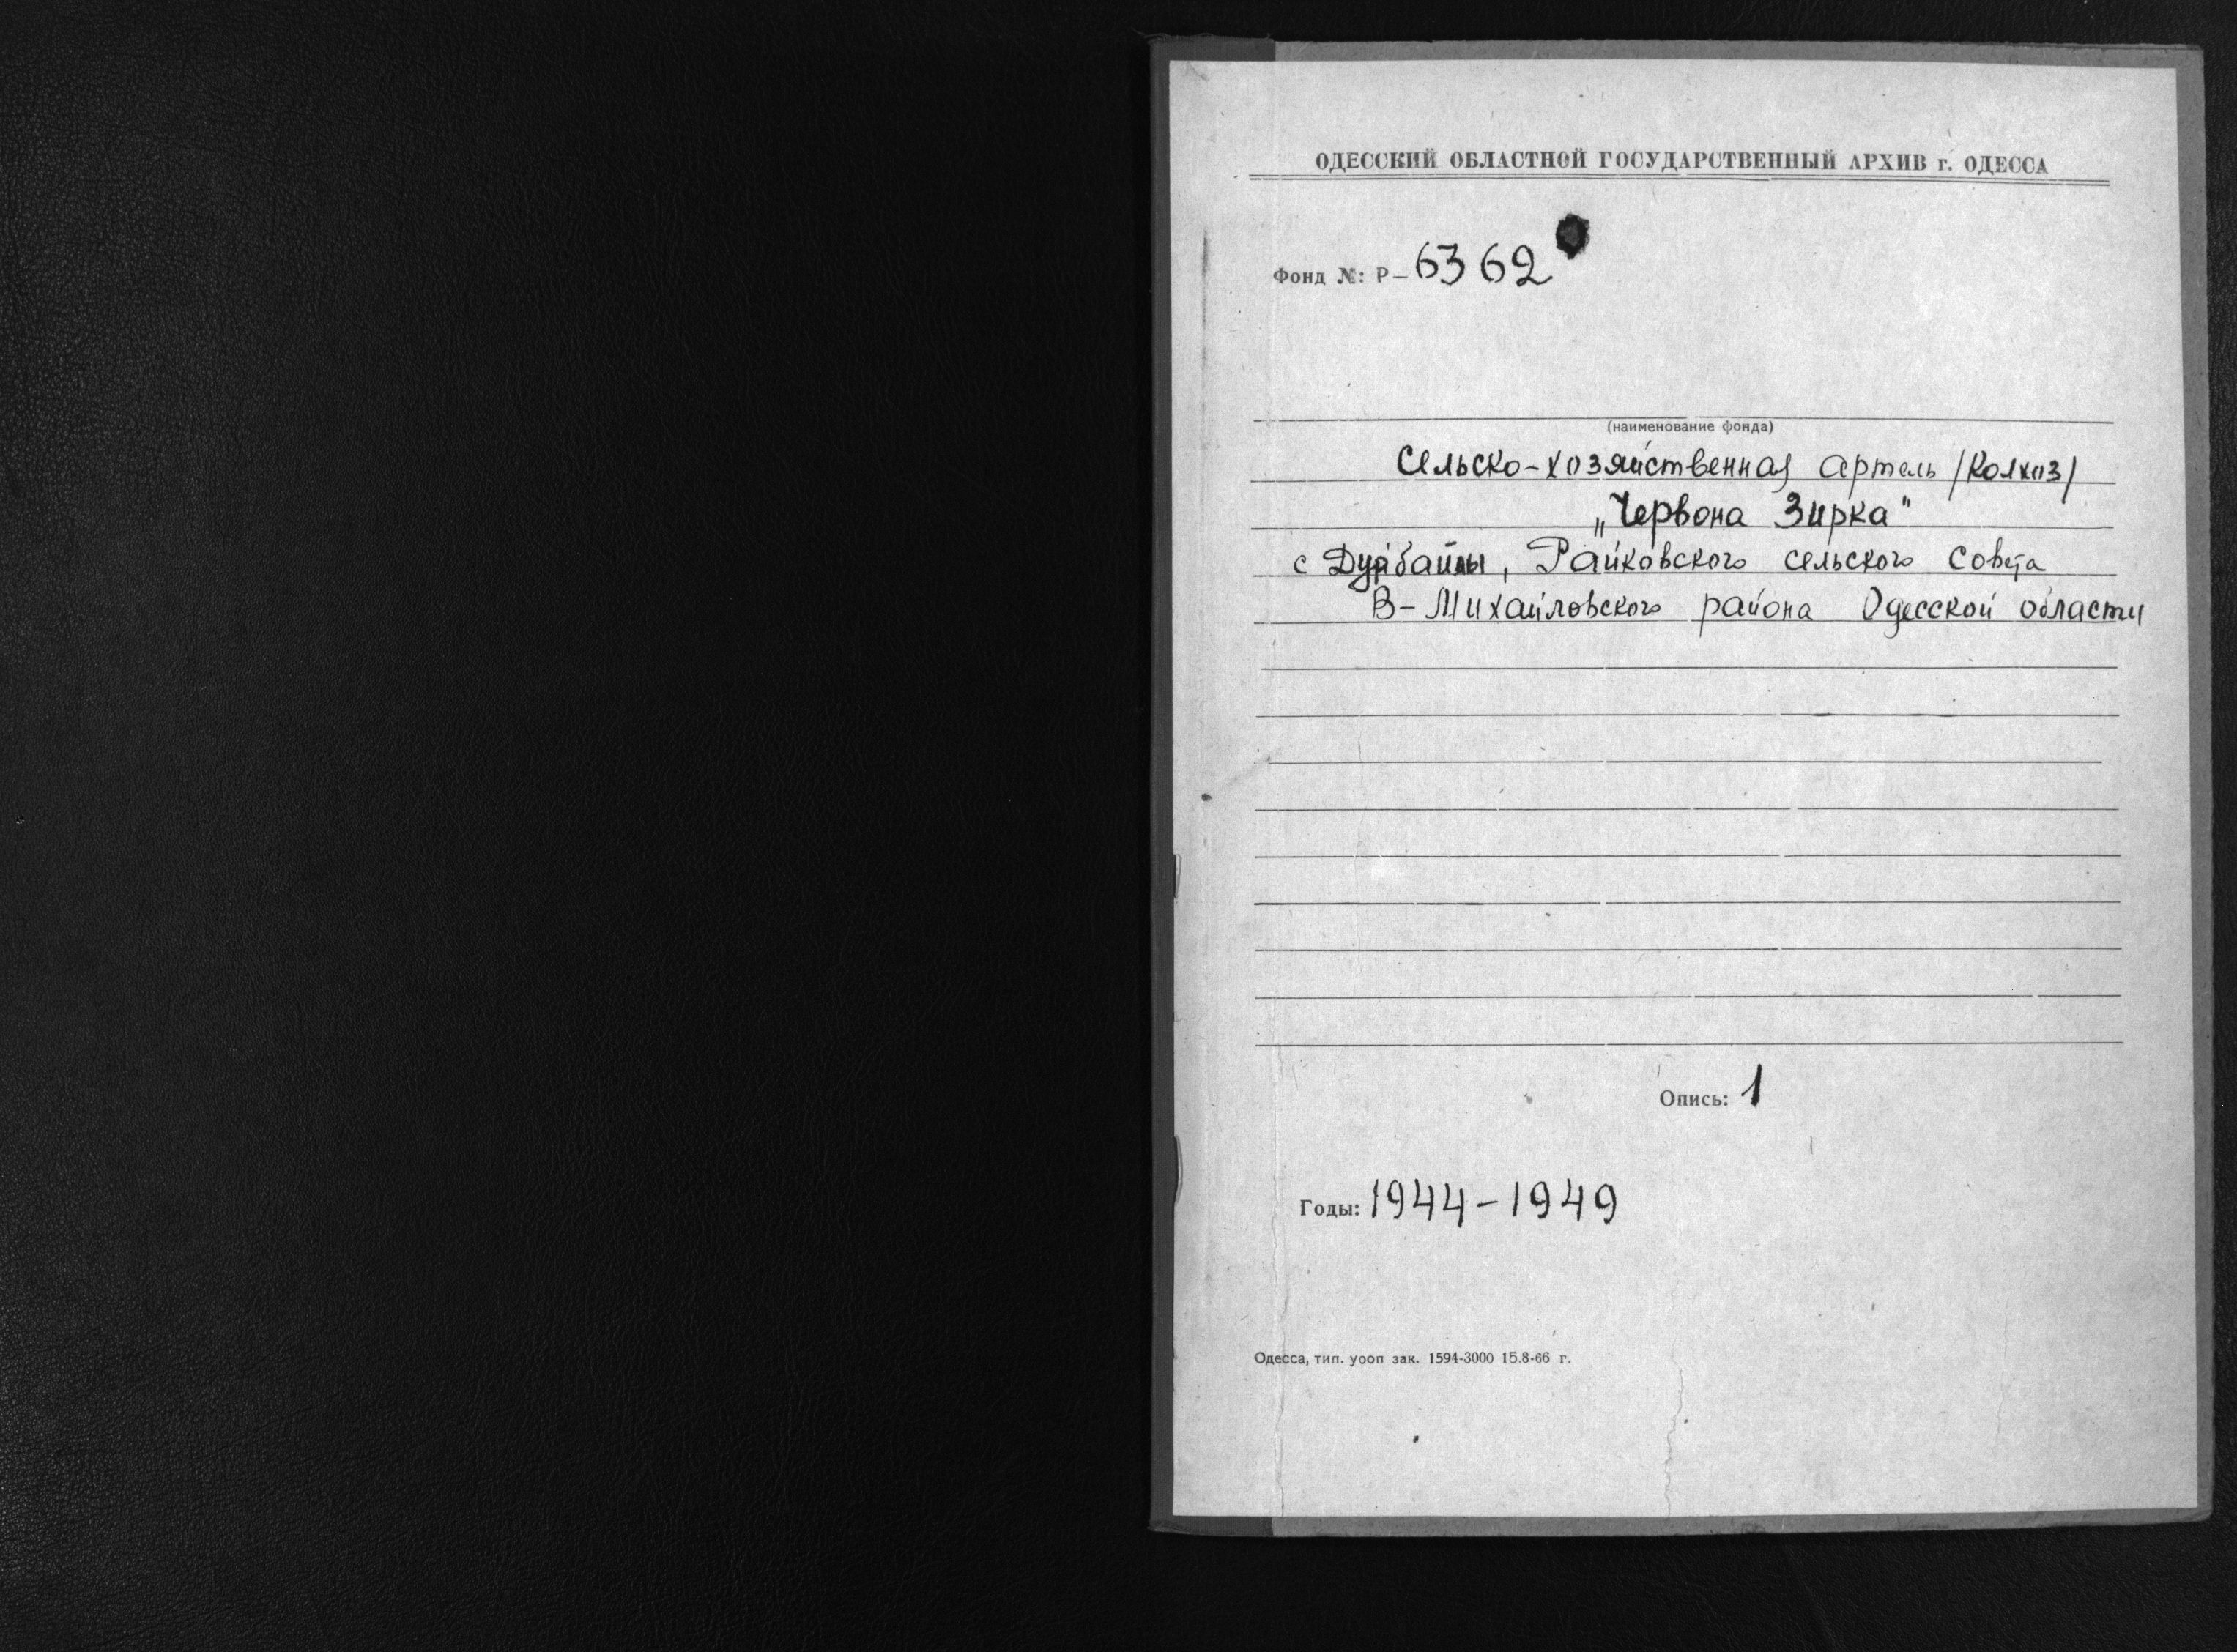 ОДЕССКИЙ ОБЛАСТНОЙ ГОСУДАРСТВЕННЫЙ АРХИВ г. ОДЕССА
Фонд №: Р-6362
(наименование фонда)
Сельско-хозяйственная артель /Колхоз/
„Червона Зирка"
с , Райковского сельского Совета
В-Михайловского района Одесской области
Опись: 1
Годы: 1944-1949
Одесса, тип. уооп зак. 1594-3000 15.8-66 г.